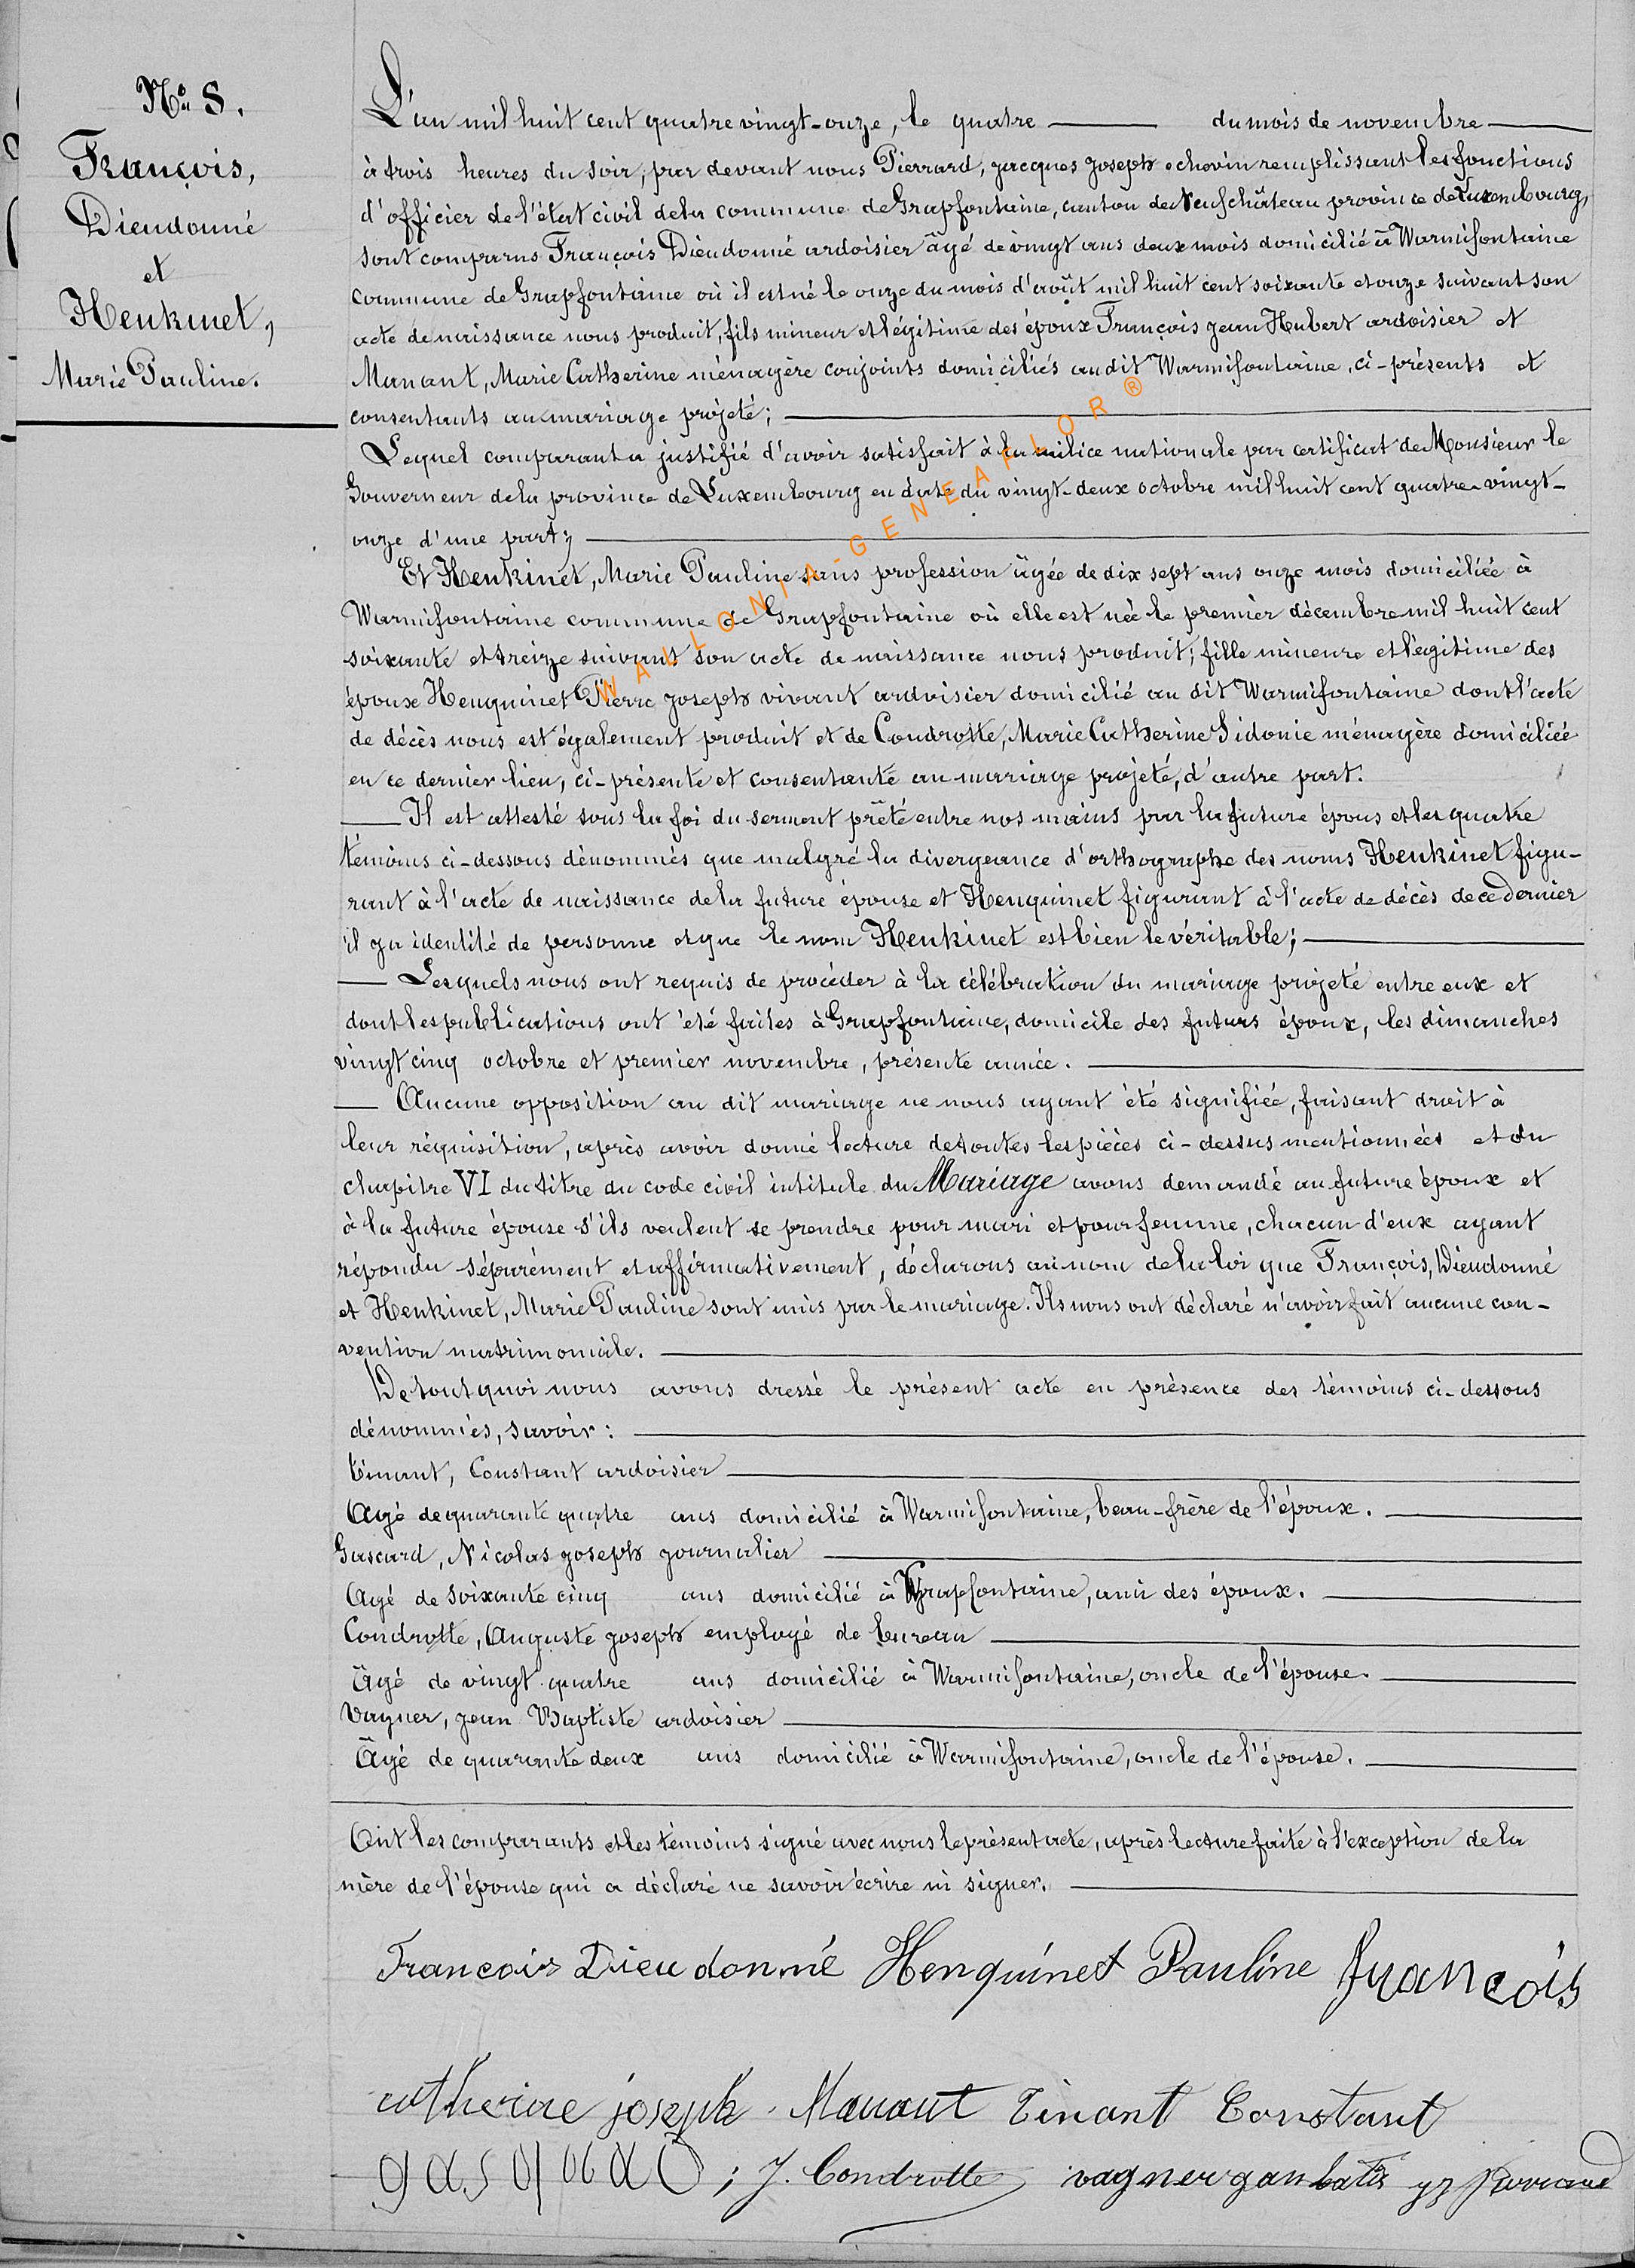 Nº 8.
François,
Dieudonné
et
Henkinet,
Marie Pauline.
L'an mil huit cent quatre vingt-onze, le quatre du mois de novembre
à trois heures du soir, par devant nous Pierrard, Jacques Joseph echevin remplissant les fonctions
d'officier de l'état civil de la commune de Grapfontaine, canton de Neufchâteau province de Luxembourg,
sont comparus François Dieudonné ardoisier âgé de vingt ans deux mois domicilié à Warmifontaine
commune de Grapfontaine où il est né le onze du mois d'août mil huit cent soixante et onze suivant son
acte de naissance nous produit, fils mineur et légitime des époux François Jean Hubert ardoisier et
Manant, Marie Catherine ménagère conjoints domiciliés au dit Warmifontaine, ci-présents et
consentants au mariage projeté;
Lequel comparant a justifié d'avoir satisfait à la milice nationale par certificat de Monsieur le
Gouverneur de la province de Luxembourg en date du vingt-deux octobre mil huit cent quatre-vingt-
onze d'une part;
Et Henkinet, Marie Pauline sans profession âgée de dix sept ans onze mois domiciliée à
Warmifontaine commune de Grapfontaine où elle est née le premier décembre mil huit cent
soixante et treize suivant son acte de naissance nous produit; fille mineure et légitime des
époux Henquinet Pierre Joseph vivant ardoisier domicilié au dit Warmifontaine dont l'acte
de décès nous est également produit et de Condrotte, Marie Catherine Sidonie ménagère domiciliée
en ce dernier lieu, ci-présente et consentante au mariage projeté, d'autre part.
Il est attesté sous la foi du serment prêté entre nos mains par la future épous et les quatre
témoins ci-dessous dénommés que malgré la divergeance d'orthographe des noms Henkinet figu-
rant à l'acte de naissance de la future épouse et Henquinet figurant à l'acte de décès de ce dernier
il y a identité de personne et que le nom Henkinet est bien le véritable;
Lesquels nous ont requis de procéder à la célébration du mariage projeté entre eux et
dont les publications ont été faites à Grapfontaine, domicile des futurs époux, les dimanches
vingt cinq octobre et premier novembre, présente année.
Aucune opposition au dit mariage ne nous ayant été signifiée, faisant droit à
leur réquisition, après avoir donné lecture de toutes les pièces ci-dessus mentionnées et du
chapitre VI du titre du code civil intitule du Mariage avons demandé au future époux et
à la future épouse s'ils veulent se prendre pour mari et pour femme, chacun d'eux ayant
répondu séparément et affirmativement, déclarons au nom de la loi que François, Dieudonné
et Henkinet, Marie Pauline sont unis par le mariage. Ils nous ont déclaré n'avoir fait aucune con-
vention matrimoniale.
De tout quoi nous avons dressé le présent acte en présence des témoins ci-dessous
dénommés, savoir:
Tinant, Constant ardoisier
Agé de quarante quatre ans domicilié à Warmifontaine, beau-frère de l'époux.
Gascard, Nicolas Joseph journalier
Agé de soixante cinq ans domicilié à Grapfontaine, ami des époux.
Condrotte, Auguste Joseph employé de bureau
Âgé de vingt quatre ans domicilié à Warmifontaine, oncle de l'épouse.
Vagner, Jean Baptiste ardoisier
Âgé de quarante deux ans domicilié à Warmifontaine, oncle de l'épouse.
Ont les comparants et les témoins signé avec nous le présent acte, après lecture faite à l'exception de la
mère de l'épouse qui a déclaré ne savoir écrire ni signer.
Francois Dieudonné Henquinet Pauline françois
catherine joseph Manant Tinant Constant
J. Condrotte vagner
WALLONIA-GENEAFLOR®